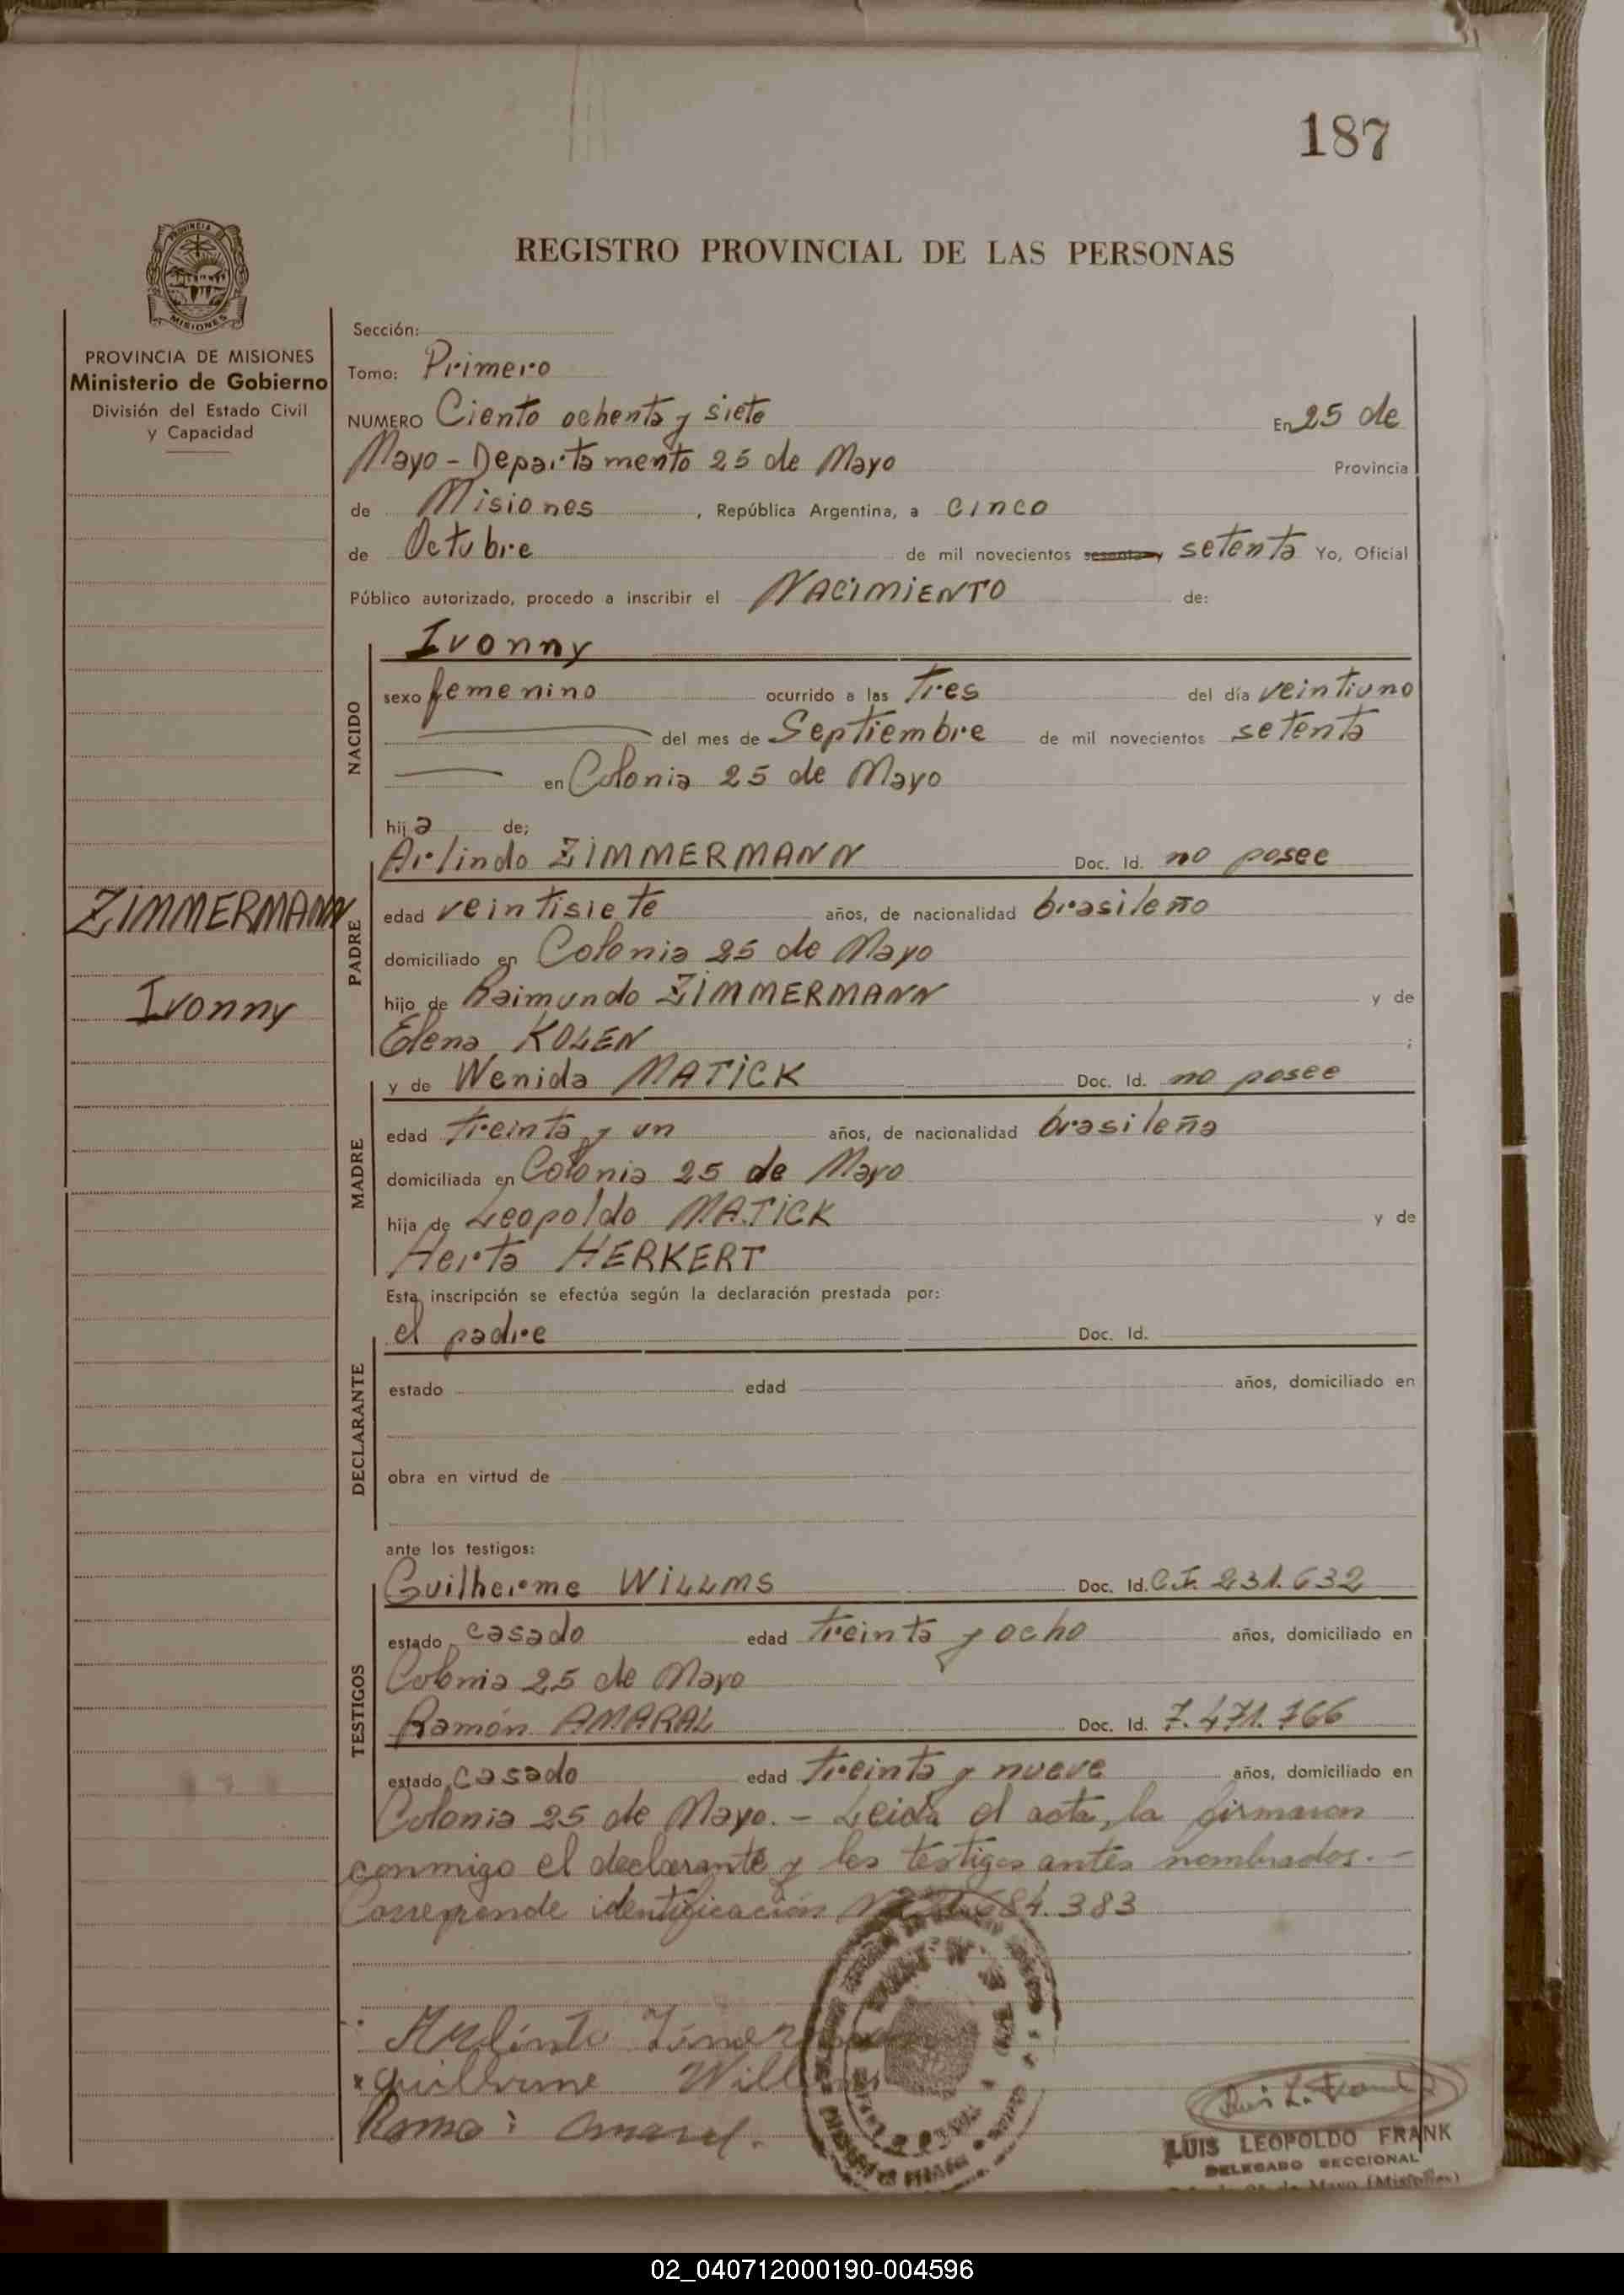 187
PROVINCIA
MISIONES
REGISTRO PROVINCIAL DE LAS PERSONAS
PROVINCIA DE MISIONES
Ministerio de Gobierno
División del Estado Civil
y Capacidad
ZIMMERMANN
Ivonny
Sección:
Tomo: Primero
NUMERO Ciento ochenta y siete En 25 de
Mayo - Departamento 25 de Mayo Provincia
de Misiones, República Argentina, a cinco
de Octubre de mil novecientos sesenta y setenta Yo, Oficial
Público autorizado, procedo a inscribir el NACIMIENTO de:
NACIDO
Ivonny
sexo femenino ocurrido a las Tres del día veintiuno
del mes de Septiembre de mil novecientos setenta
en Colonia 25 de Mayo
hija de;
PADRE
Arlindo ZIMMERMANN Doc. Id. no posee
edad veintisiete años, de nacionalidad brasileño
domiciliado en Colonia 25 de Mayo
hijo de Raimundo ZIMMERMANN y de
Elena KOLEN ;
MADRE
y de Wenida MATICK Doc. Id. no posee
edad treinta y un años, de nacionalidad brasileña
domiciliada en Colonia 25 de Mayo
hija de Leopoldo MATICK y de
Herta HERKERT
Esta inscripción se efectúa según la declaración prestada por:
DECLARANTE
el padre Doc. Id.
estado edad años, domiciliado en
obra en virtud de
ante los testigos:
TESTIGOS
Guilherme WILLMS Doc. Id. C.I. 231.632
estado casado edad treinta y ocho años, domiciliado en
Colonia 25 de Mayo
Ramón AMARAL Doc. Id. 7.471.766
estado casado edad treinta y nueve años, domiciliado en
Colonia 25 de Mayo. - Leida el acta, la firmaron
conmigo el declarante y los testigos antes nombrados. -
Corresponde identificación 684.383
Arlindo
Guilherme Willms
Ramo: Amaral.
Luis L. Frank
LUIS LEOPOLDO FRANK
DELEGADO SECCIONAL
25 de Mayo (Misiones)
02_040712000190-004596